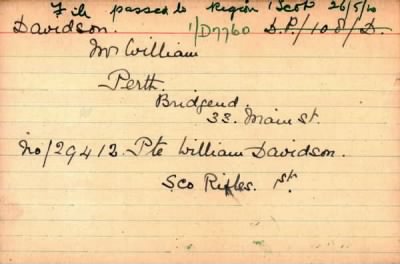 File passed to Region 1 Scot 26/5/10
Davidson. 1/D7760 D.P./108/D.
Mr William
Perth.
Bridgend.
33. Main St.
No/29413. Pte William Davidson.
Sco Rifles. 1st.